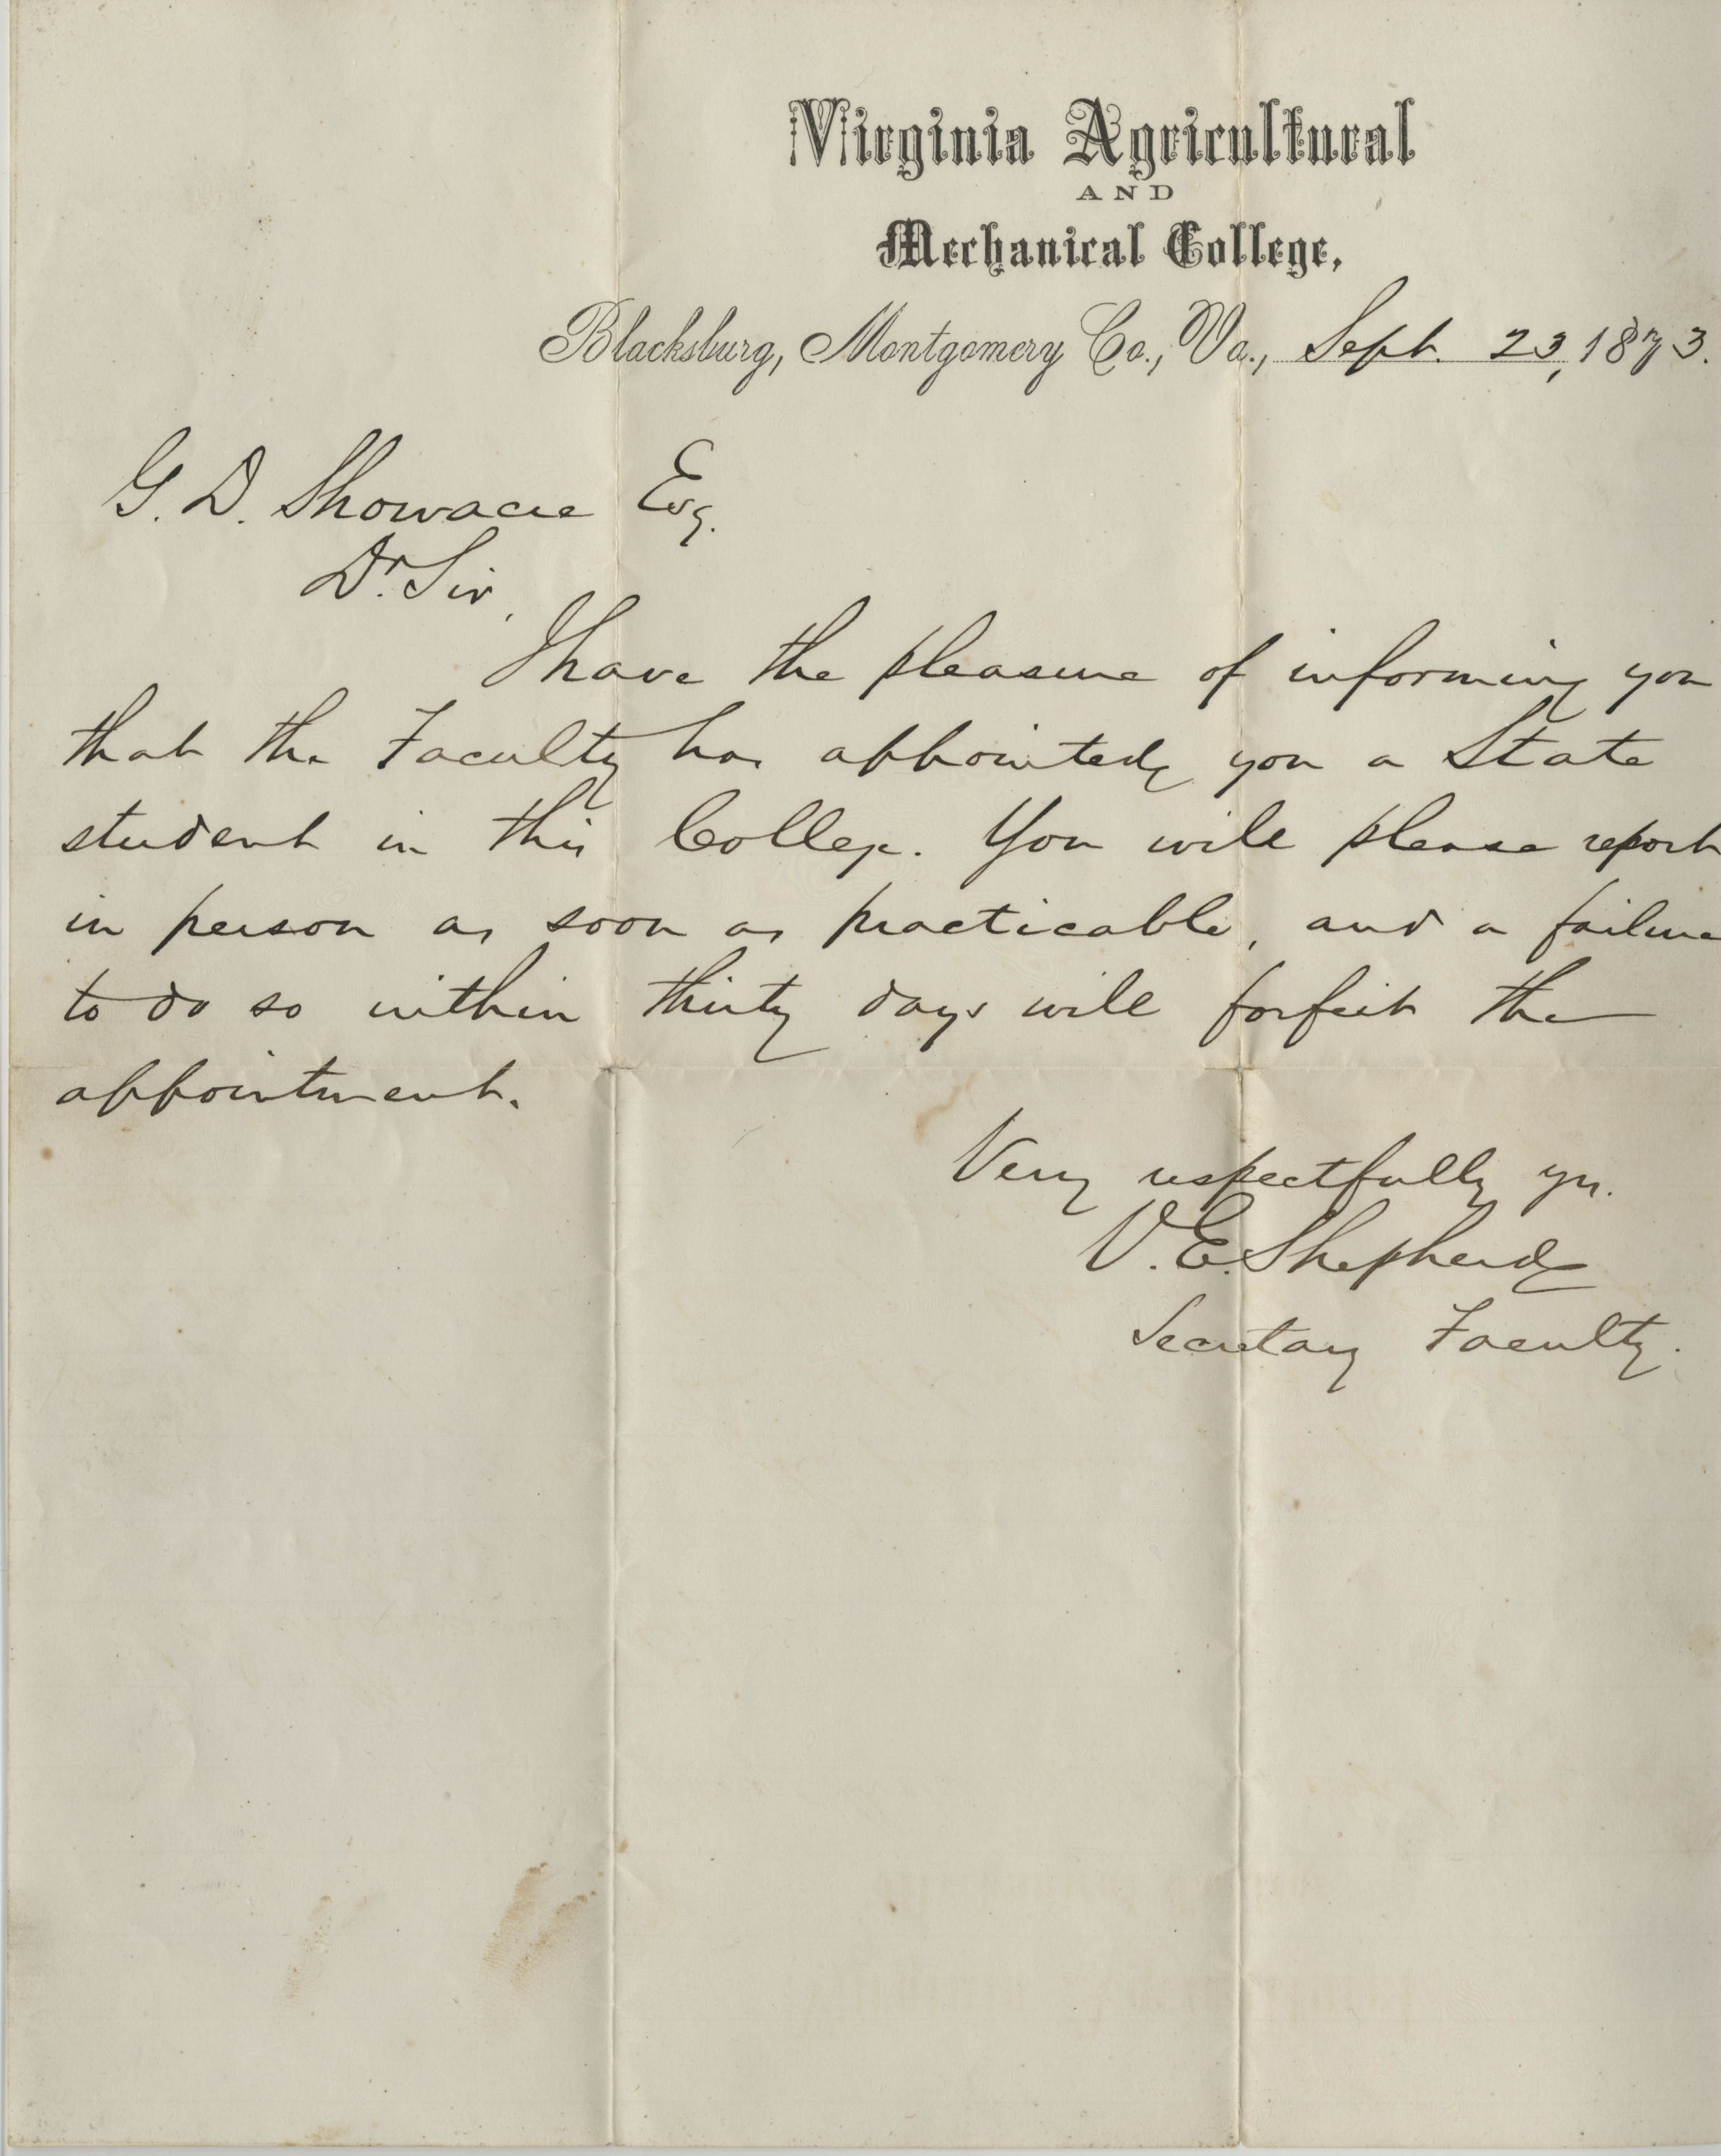 Virginia Agricultural
AND
Mechanical College,
Blacksburg, Montgomery Co., Va., Sept. 23, 1873.
G. D. Showacre Esq.
Dr. Sir,
I have the pleasure of informing you
that the Faculty has appointed you a State
student in this College. You will please report
in person as soon as practicable, and a failure
to do so within thirty days will forfeit the
appointment.
Very respectfully yrs.
V. E. Shepherd
Secretary Faculty.